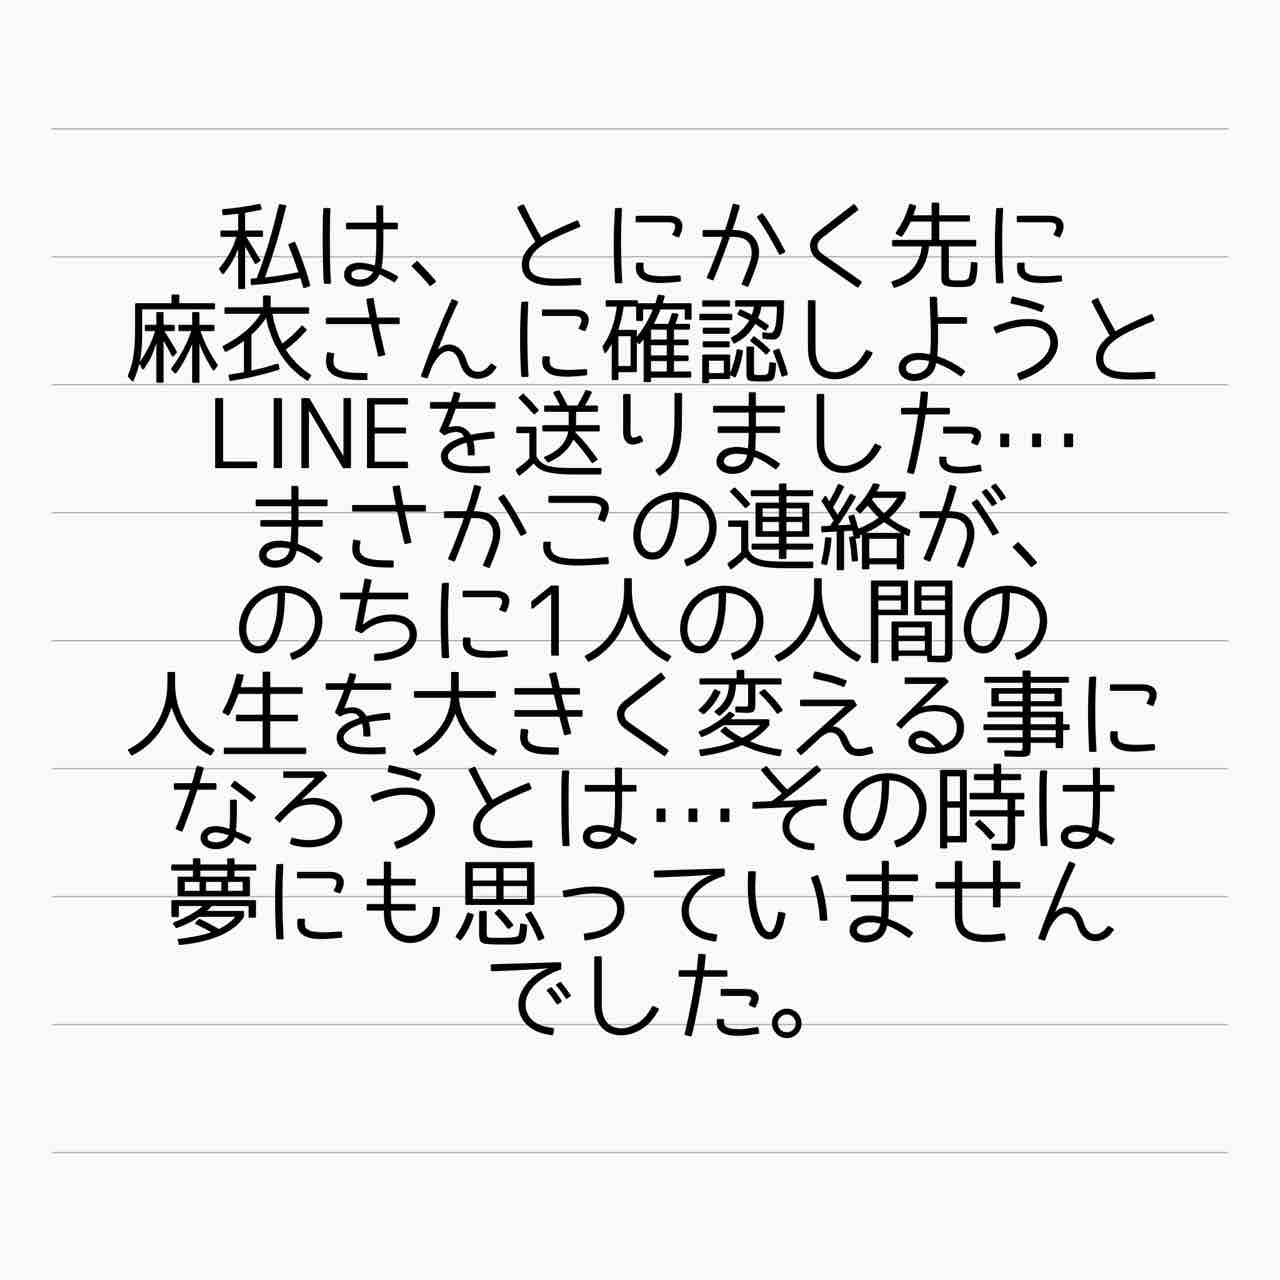 私は、とにかく先に
麻衣さんに確認しようと
LINEを送りました…
まさかこの連絡が、
のちに1人の人間の
人生を大きく変える事に
なろうとは…その時は
夢にも思っていません
でした。